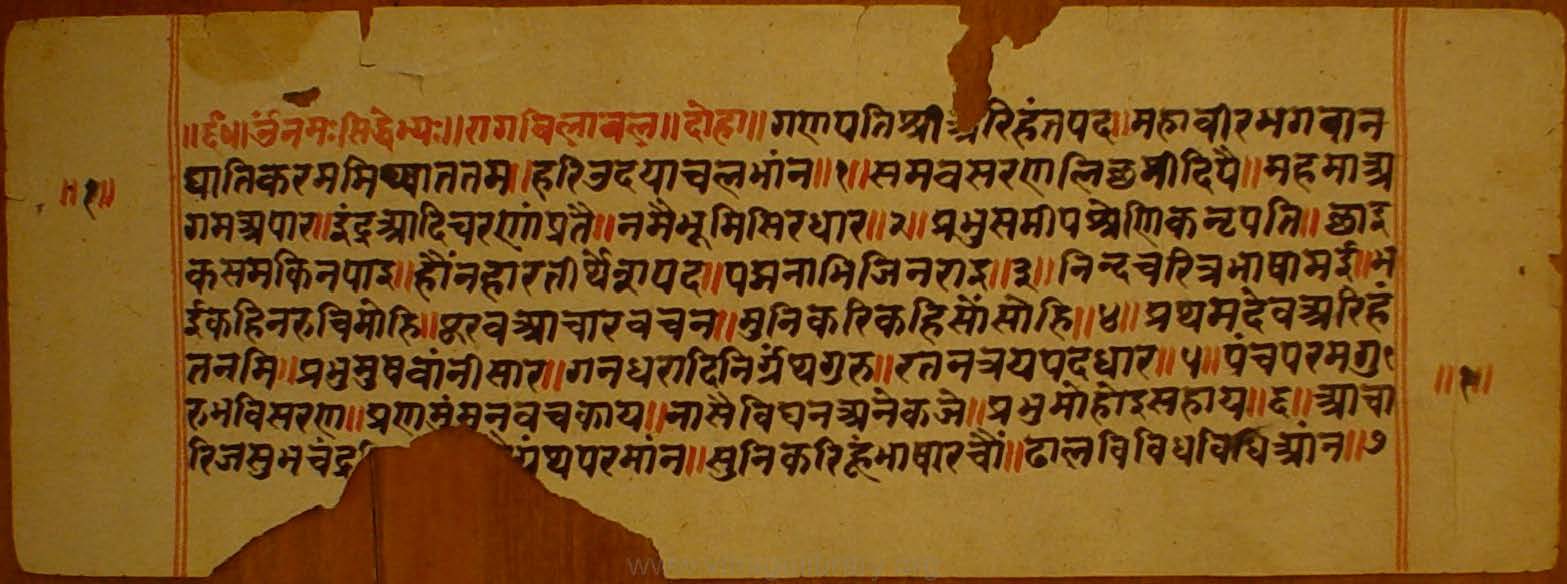 ॥र्दण॥र्उनमःसिद्धेभ्यः॥रागबिलाबल॥दोहा॥गणपतिश्रीअरिहंतपद॥महावीरभगवान
घातिकरममिथ्याततम॥हरिउदयाचलभांन॥१॥समवसरणलिछमीदिपै॥महमाअ
गमअपार॥इंद्रआदिचरणांप्रतै॥नमैभूमिसिरधार॥२॥प्रभुसमीपश्रेणिकनृपति॥छाइ
कसमकिनपाइ॥हौंनहारतीर्थेपद॥पद्मनाभिजिनराइ॥३॥निन्दचरित्रभाषामई॥भ
ईकहिनरुचिमोहि॥पूरवआचारवचन॥सुनिकरिकहिसौंसोहि॥४॥प्रथमदेवअरिहं
तनमि॥प्रभुमुषवांनीसार॥गनधरादिनिर्ग्रंथगुरु॥रतनत्रयपदधार॥५॥पंचपरमगु
रुभविसरण॥प्रणमुंमनवचकाय॥नासैविघनअनेकजे॥प्रभुमोहोइसहाय॥६॥आचा
रिजसुभचंद्र ग्रंथपरमांन॥सुनिकरिहूंभाषारचौं॥ढालविविधविधिआंन॥७
॥१॥
॥१॥